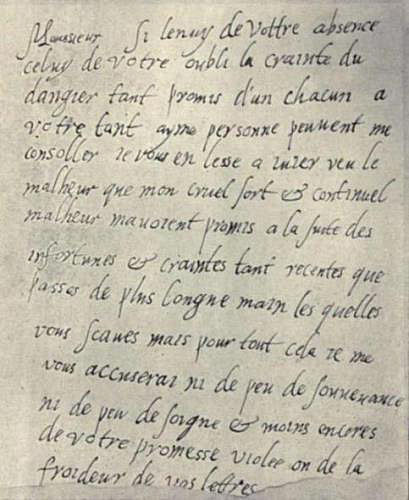 Monsieur Si lenuy de vostre absence
celuy de vostre oubli la crainte du
dangier tant promis d'un chacun a
votre tant ayme personne peuvent me
consoller ie vous en lesse a iuier veu le
malheur que mon cruel sort & continuel
malheur mavoient promis a la suite des
infortunes & craintes tant recentes que
passes de plus longue main les quelles
vous scaves mais pour tout cela ie me
vous accuserai ni de peu de souvenance
ni de peu de soigne & moins encores
de votre promesse violee ou de la
froideur de vos lettres